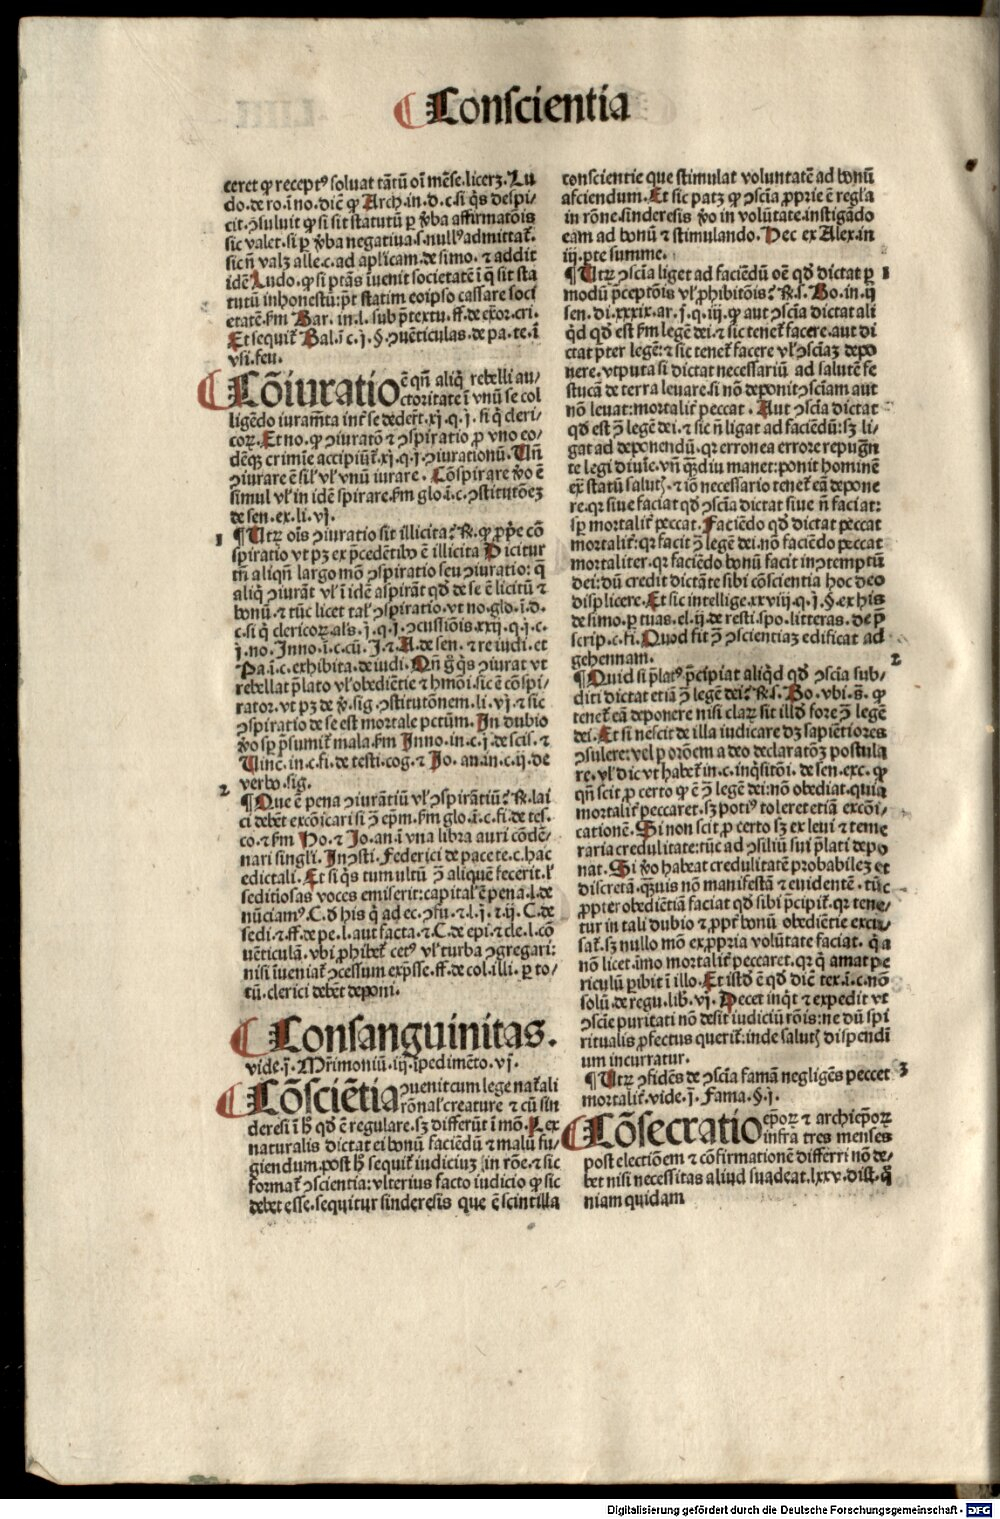 Conscientia
ceret ꝙ recept⁹ soluat tātū oī mēse.licerꝫ.Lu
do.de ro.ī no.diē ꝙ Arch.in.d.c.si q̄s despi
cit.ꝯsuluit ꝙ si sit statutū ꝑ v̄ba affirmatōis
sic valet.si ꝑ v̄ba negatiua.s.null⁹ admittat̄.
sic n̄ valꝫ alle.c.ad aplicam.de simo.⁊ addit
idē Ludo.ꝙ si p̄tās īuenit societatē ī q̄ sit sta
tutū inhonestū:p̄t statim eoipso cassare soci
etatē.fm̄ Bar.in.l.sub p̄textu.ff.de ex̄or.cri.
Et sequit̄ Bal.ī c.j.§.ꝯuēticulas.de pa.te.ī
vsi.feu.
Cōiuratio ē qn̄ aliq̄ rebelli au/
ctoritate ī vnū se col
ligēdo iuram̄ta int̄ se dedert̄.xj.q.j.si q̄ cleri
coꝝ.Et no.ꝙ ꝯiuratō ⁊ ꝯspiratio ꝓ vno eo/
dēqꝫ crimīe accipiūt̄.xj.q.j.ꝯiurationū.Un̄
ꝯiurare ē sil̄ vl̄ vnū iurare.Cōspirare v̄o ē
simul vl̄ in idē spirare.fm̄ glo.ī.c.ꝯstitutōeꝫ
de sen.ex.li.vj.
1 ¶Utꝝ oīs ꝯiuratio sit illicita? R.ꝙ ꝓp̄e cō
spiratio vt pꝫ ex p̄cedētibꝰ ē illicita Dicitur
tn̄ aliqn̄ largo mō ꝯspiratio seu ꝯiuratio:q̄
aliq̄ ꝯiurāt vl̄ ī idē aspirāt qd̄ de se ē licitū ⁊
bonū.⁊ tūc licet tal̄ ꝯspiratio.vt no.glo.ī.d.
c.si q̄ clericoꝝ.al̄s.j.q.j.ꝯcussiōis.xxij.q.j.c.
j.no.Inno.ī.c.cū.J.⁊ A.de sen.⁊ re iudi.et
Pa.ī.c.exhibita.de iudi.Qn̄ g̊ q̄s ꝯiurat vt
rebellat p̄lato vl̄ obediētie ⁊ hmōi.sic ē cōspi/
rator.vt pꝫ de v̄.sig.ꝯstitutōnem.li.vj.⁊ sic
ꝯspiratio de se est mortale pctūm.In dubio
v̄o sꝑ p̄sumit̄ mala.fm̄ Inno.in.c.j.de scis.⁊
Uinc.in.c.fi.de testi.cog.⁊ Jo.an.in.c.ij.de
verbo.sig.
2 ¶Que ē pena ꝯiurātiū vl̄ ꝯspirātiū? R.lai
ci debēt excōicari si ꝯ̄ ep̄m.fm̄ glo.ī.c.fi.de tes.
co.⁊ fm̄ Ho.⁊ Jo.an.ī vna libra auri cōdē/
nari singl̄i.In ꝯsti.Federici de pace te.c.hac
edictali.Et si q̄s tumultū ꝯ̄ aliquē fecerit.l̄
seditiosas voces emiserit:capital̄ ē pena.l.de
nūciam⁹.C.d̄ his q̄ ad ec.ꝯfu.⁊.l.j.⁊.ij.C.de
sedi.⁊ ff.de pe.l.aut facta.⁊ C.de epi.⁊ cle.l.cō
uēticulā.vbi ꝓhibet̄ cet⁹ vl̄ turba ꝯgregari:
nisi īueniat̄ ꝯcessum exp̄sse.ff.de col.illi.ꝑ to/
tū.clerici debēt deponi.
Consanguinitas.
vide.j̄.Mr̄imoniū.iij.īpedimēto.vj.
Cōsciētia ꝯuenit cum lege nat̄ali
rōnal̄ creature ⁊ cū sin
deresi ī h̄ qd̄ ē regulare.sꝫ differūt ī mō.Lex
naturalis dictat ei bonū faciēdū ⁊ malū fu/
giendum.post h̄ sequit̄ iudiciuꝫ in rōe.⁊ sic
format̄ ꝯscientia:vlterius facto iudicio ꝙ sic
debet esse.sequitur sinderesis que ē scintilla
conscientie que stimulat voluntatē ad bonū
afciendum.Et sic patꝫ ꝙ ꝯscīa ꝓprie ē regl̄a
in rōne.sinderesis v̄o in volūtate.instigādo
eam ad bonū ⁊ stimulando.Hec ex Alex.in
iij.ꝑte summe.
1 ¶Utꝝ ꝯscīa liget ad faciēdū oē qd̄ dictat ꝑ
modū p̄ceptōis vl̄ ꝓhibitōis? R.s.Bo.in.ij
sen.di.xxxix.ar.j.q.iij.ꝙ aut ꝯscīa dictat ali
q̄d qd̄ est fm̄ legē dei.⁊ sic tenet̄ facere.aut di
ctat p̄ter legē:⁊ sic tenet̄ facere vl̄ ꝯscīaꝫ depo
nere.vtputa si dictat necessariū ad salutē fe
stucā de terra leuare.si nō deponit ꝯscīam aut
nō leuat:mortalit̄ peccat.Aut ꝯscīa dictat
qd̄ est ꝯ̄ legē dei.⁊ sic n̄ ligat ad faciēdū:sꝫ li/
gat ad deponendū.qꝛ erronea errore repugn̄
te legi diuīe.vn̄ qꝫdiu manet:ponit hominē
ex̄ statū saluti⁹.⁊ iō necessario tenet̄ eā depone
re.qꝛ siue faciat qd̄ ꝯscīa dictat siue n̄ faciat:
sꝑ mortalit̄ peccat.Faciēdo qd̄ dictat peccat
mortalit̄:qꝛ facit ꝯ̄ legē dei.nō faciēdo peccat
mortaliter.qꝛ faciēdo bonū facit in ꝯtemptū
dei:dū credit dictāte sibi cōscientia hoc deo
displicere.Et sic intellige.xxviij.q.j.§.ex his
de simo.ꝑ tuas.el.ij.de resti.spo.litteras.de p̄
scrip.c.fi.Quod fit ꝯ̄ ꝯscientiaꝫ edificat ad
gehennam.
2 ¶Quid si p̄lat⁹ p̄cipiat aliq̄d qd̄ ꝯscīa sub/
diti dictat etiā ꝯ̄ legē dei? R.s.Bo.vbi.s̄.ꝙ
tenet̄ eā deponere nisi claꝝ sit illd̄ fore ꝯ̄ legē
dei.Et si nescit de illa iudicare dꝫ sapiētiores
ꝯsulere:vel ꝑ orōem a deo declaratōꝫ postula
re.vl̄ dic vt habet̄ in.c.inq̄sitōi.de sen.exc.ꝙ
qn̄ scit ꝓ certo ꝙ ē ꝯ̄ legē dei:nō obediat.quia
mortalit̄ peccaret.sꝫ poti⁹ toleret etiā excōi/
cationē.Si non scit ꝓ certo sꝫ ex leui ⁊ teme
raria credulitate:tūc ad ꝯsiliū sui p̄lati depo
nat.Si v̄o habeat credulitatē probabileꝫ et
discretā.qꝫuis nō manifestā ⁊ euidentē.tūc
ꝓpter obediētiā faciat qd̄ sibi p̄cipit̄.qꝛ tene/
tur in tali dubio ⁊ ꝓpt̄ bonū obediētie excu/
sat̄.sꝫ nullo mō ex ꝓpria volūtate faciat.q̄a
nō licet.īmo mortalit̄ peccaret.qꝛ q̄ amat pe
riculū ꝑibit ī illo.Et istd̄ ē qd̄ diē tex.ī.c.nō
solū.de regu.lib̄.vj.Decet inq̄t ⁊ expedit vt
ꝯscīe puritati nō desit iudiciū rōis:ne dū spi
ritualis ꝓfectus querit̄:inde saluti⁹ dispendī
um incurratur.
3 ¶Utꝝ ꝯfidēs de ꝯscīa famā negligēs peccet
mortalit̄.vide.j̄.Fama.§.j.
Cōsecratio ep̄oꝝ ⁊ archiep̄oꝝ
infra tres menses
post electiōem ⁊ cōfirmationē differri nō de/
bet nisi necessitas aliud suadeat.lxxv.dist.q̄
niam quidam
Digitalisierung gefördert durch die Deutsche Forschungsgemeinschaft - DFG